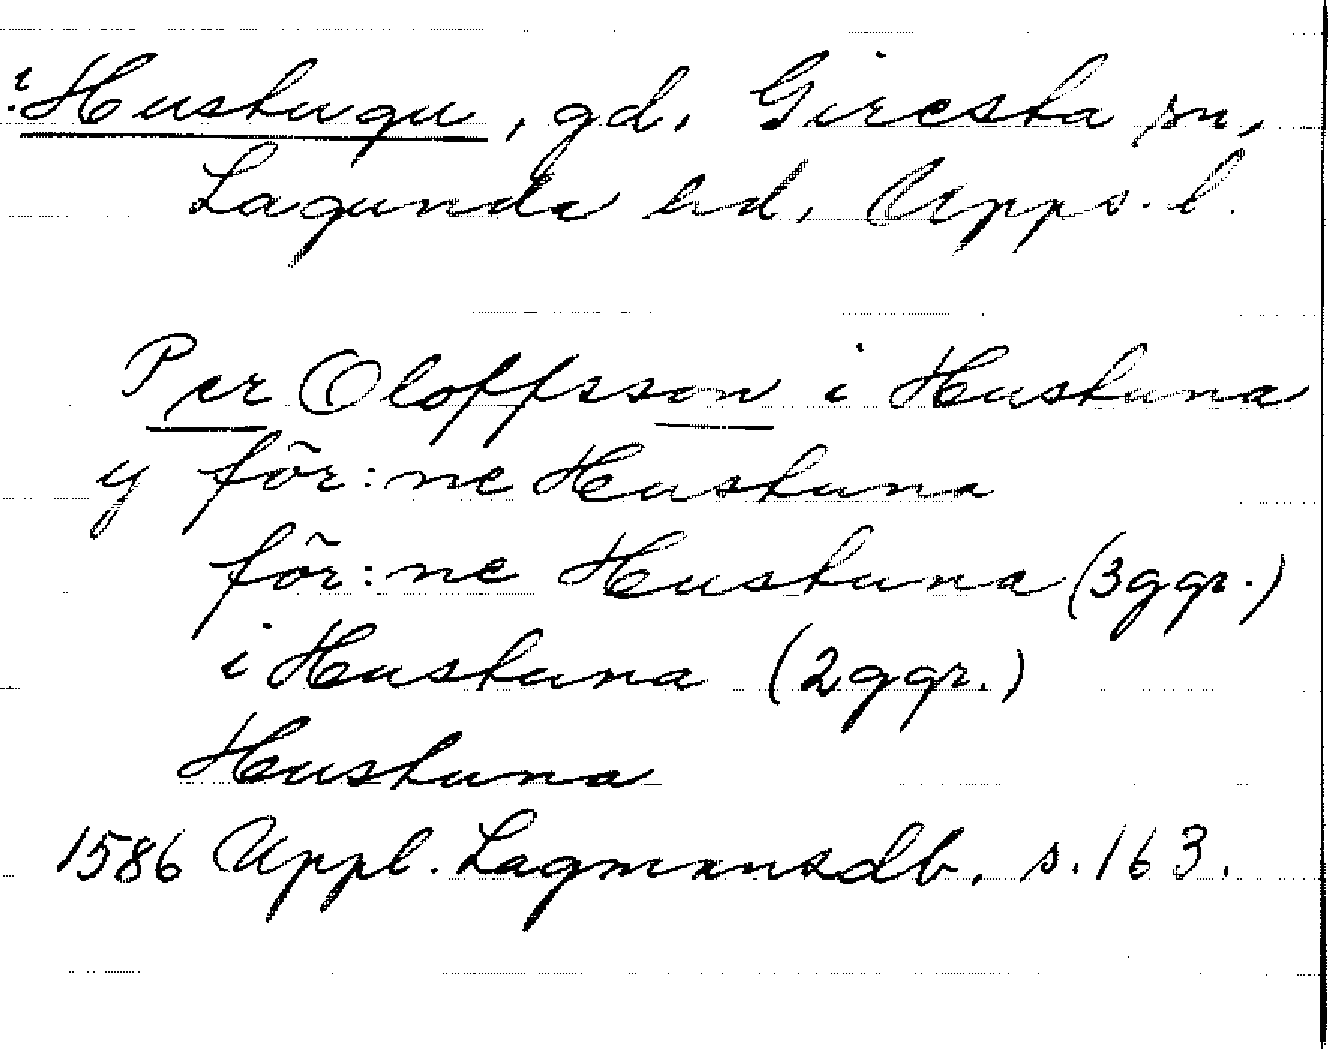 ? Hustugu, gd. Giresta sn,
Lagunda hd. Upps. l.
Per Oloffsson i Hustuna
y för:ne Hustuna
för:ne Hustuna (3 ggr.)
i Hustuna (2 ggr.)
Hustuna
1586 Uppl. Lagmansdb. s. 163.